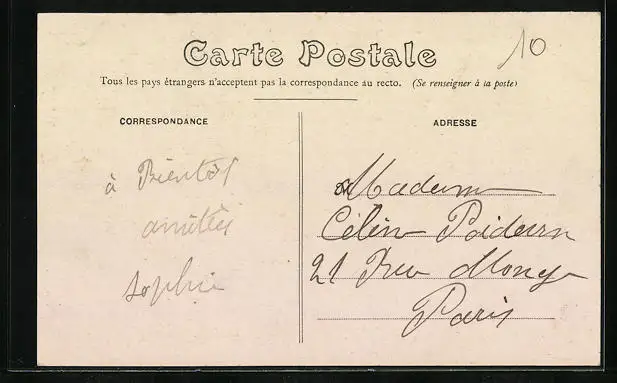 Carte Postale
10
Tous les pays étrangers n'acceptent pas la correspondance au recto. (Se renseigner à la poste)
CORRESPONDANCE
ADRESSE
à Bientôt
amitiés
Sophie
Madame
21 Rue Monge
Paris